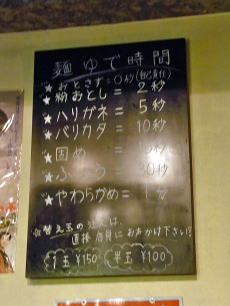 麺ゆで時間
★おとさず=0秒(自己責任)
★粉おとし = 2秒
★ハリガネ = 5秒
★バリカタ = 10秒
★固め = 秒
★ふ う = 30秒
★やわらかめ = 1分
※替え玉の注文は、
直接店員にお声かけ下さい!?
1玉¥150 半玉¥100